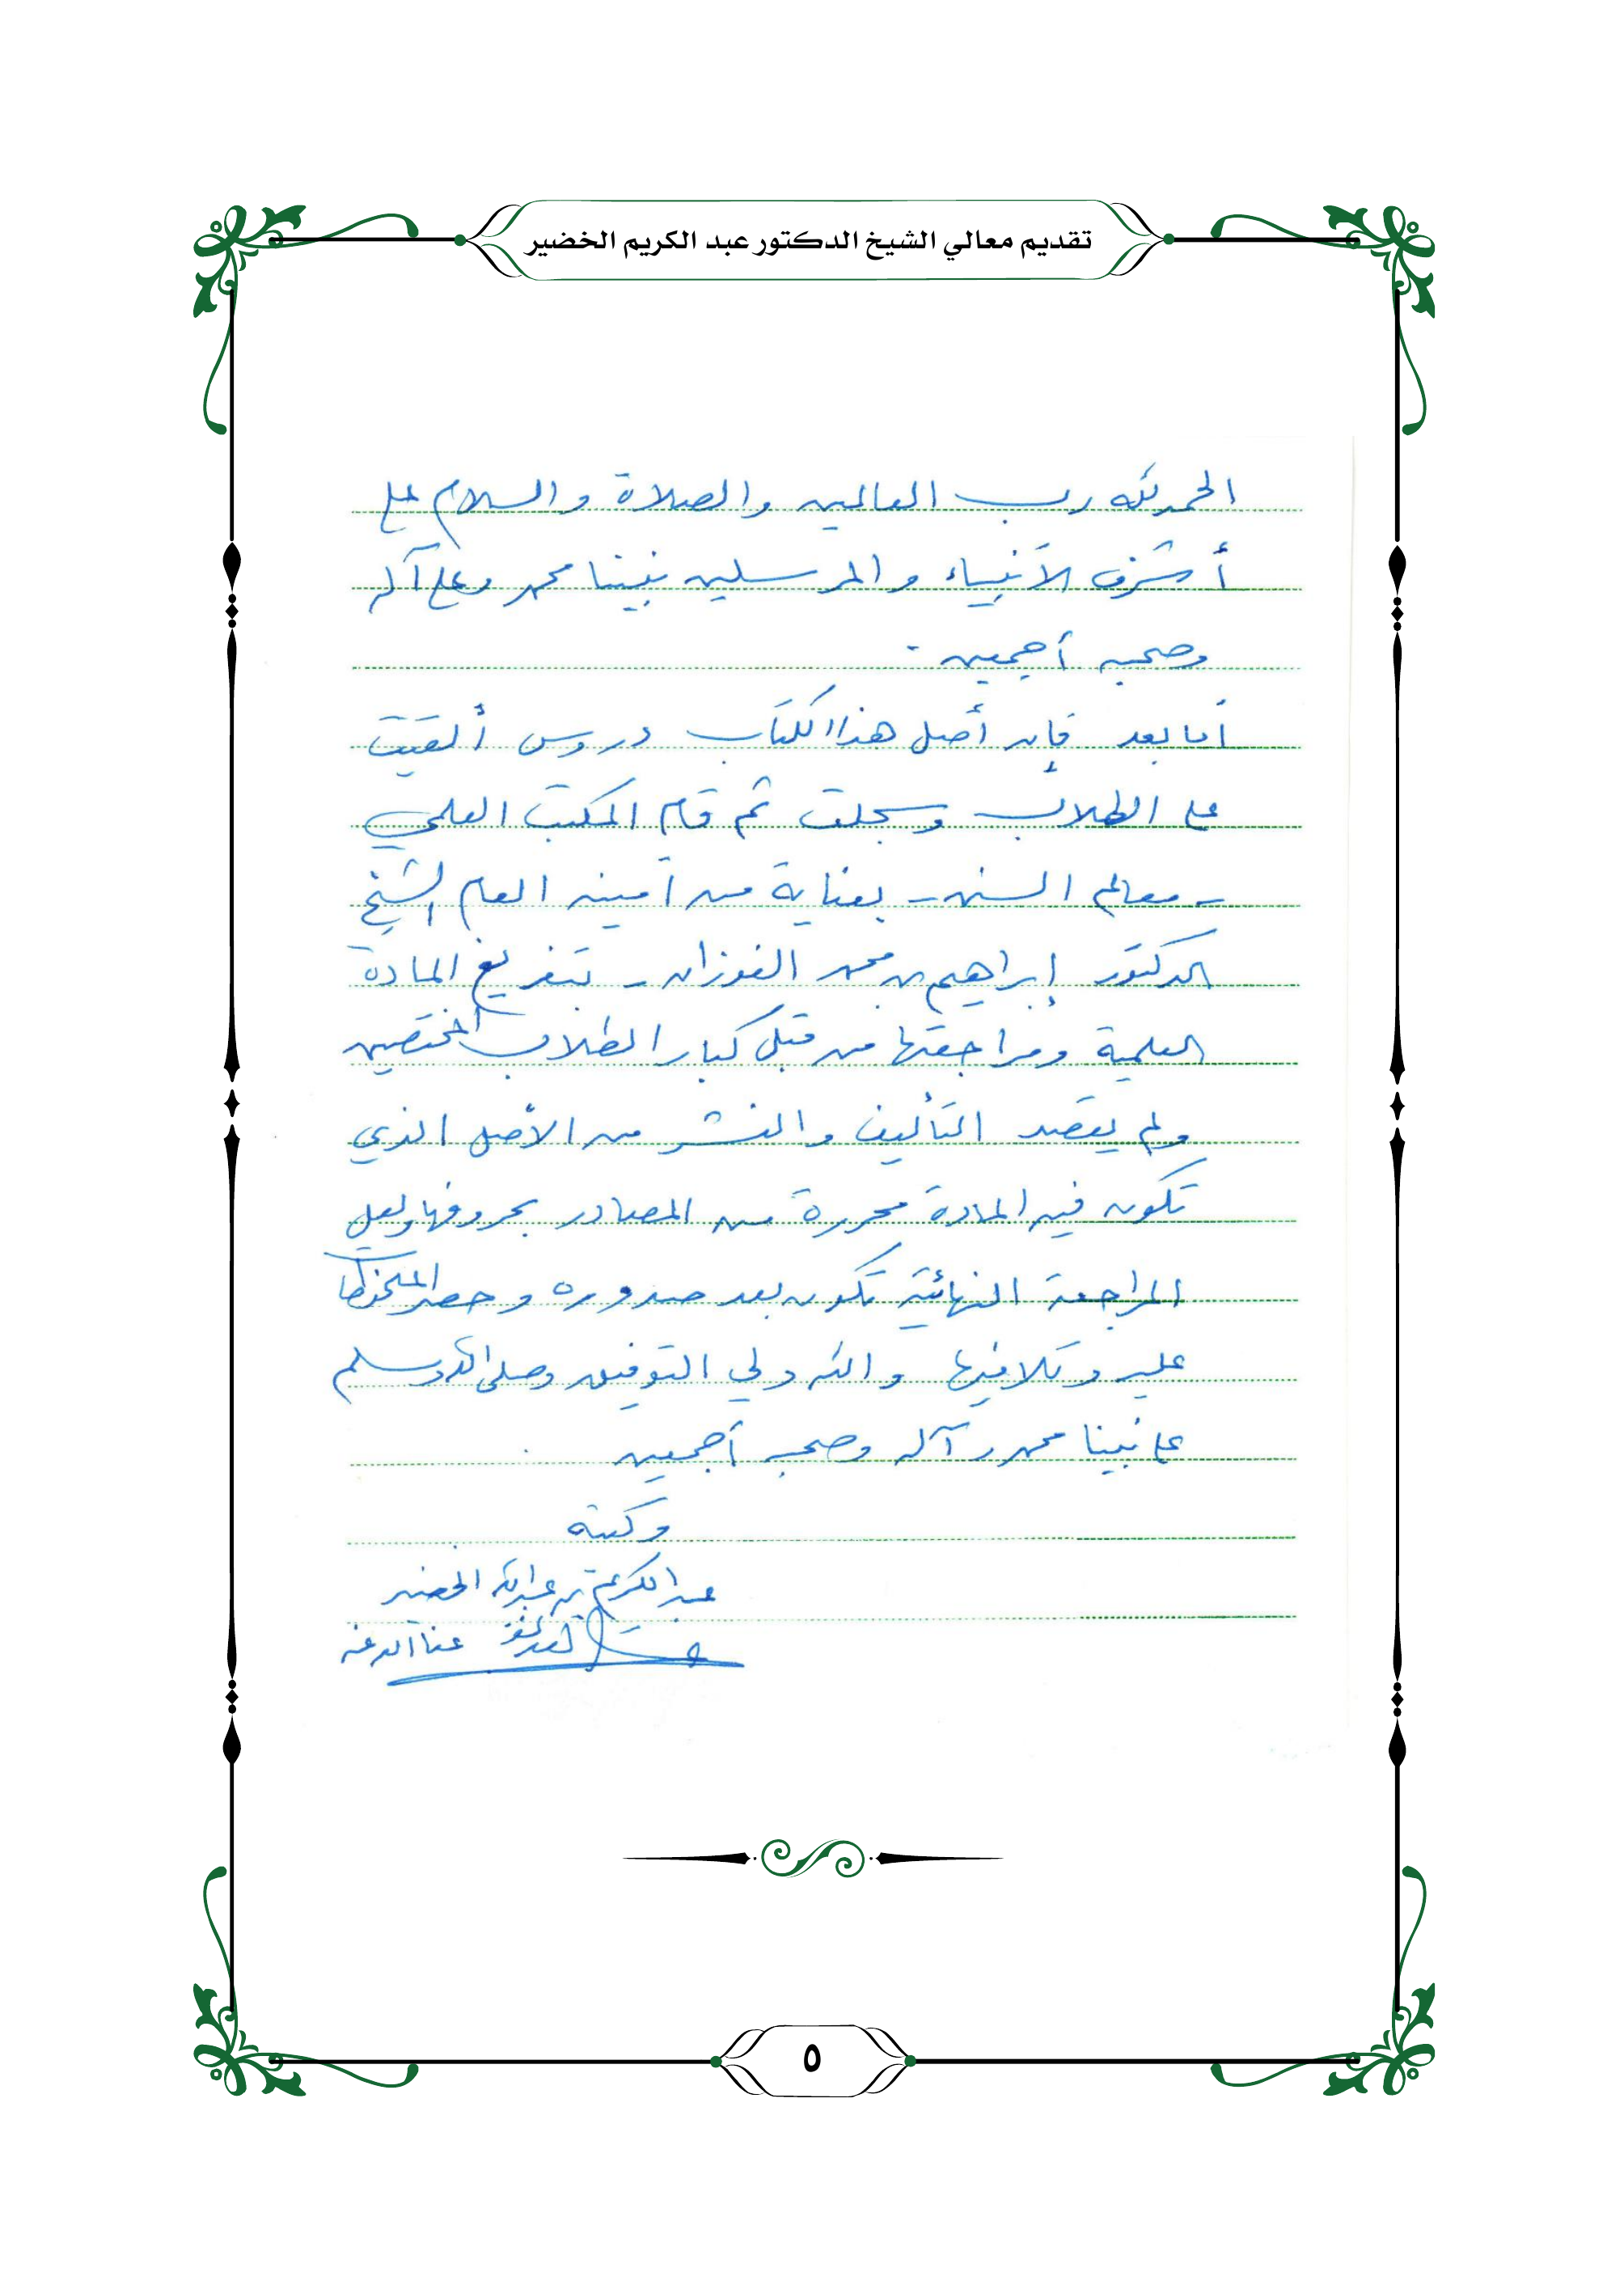 تقديم معالي الشيخ الدكتور عبد الكريم الخضير
الحمد لله رب العالمين والصلاة والسلام على
أشرف الأنبياء والمرسلين نبينا محمد وعلى آله
وصحبه أجمعين .
أما بعد فإن أصل هذا الكتاب دروس ألقيت
على الطلاب وسجلت ثم قام المكتب العلمي
- معالم السنن - بعناية من أمينه العام الشيخ
الدكتور إبراهيم بن محمد الفوزان - بتفريغ المادة
العلمية ومراجعتها من قبل كبار الطلاب المختصين
ولم يقصد التأليف والنشر من الأصل الذي
تكون فيه المادة محررة من المصادر بحروفها ولعل
المراجعة النهائية تكون بعد صدوره وحصر الملحوظات
عليه وتلافيها والله ولي التوفيق وصلى الله وسلم
على نبينا محمد وآله وصحبه أجمعين .
وكتبه
عبد الكريم بن عبد الله الخضير
عفا الله عنه
٥